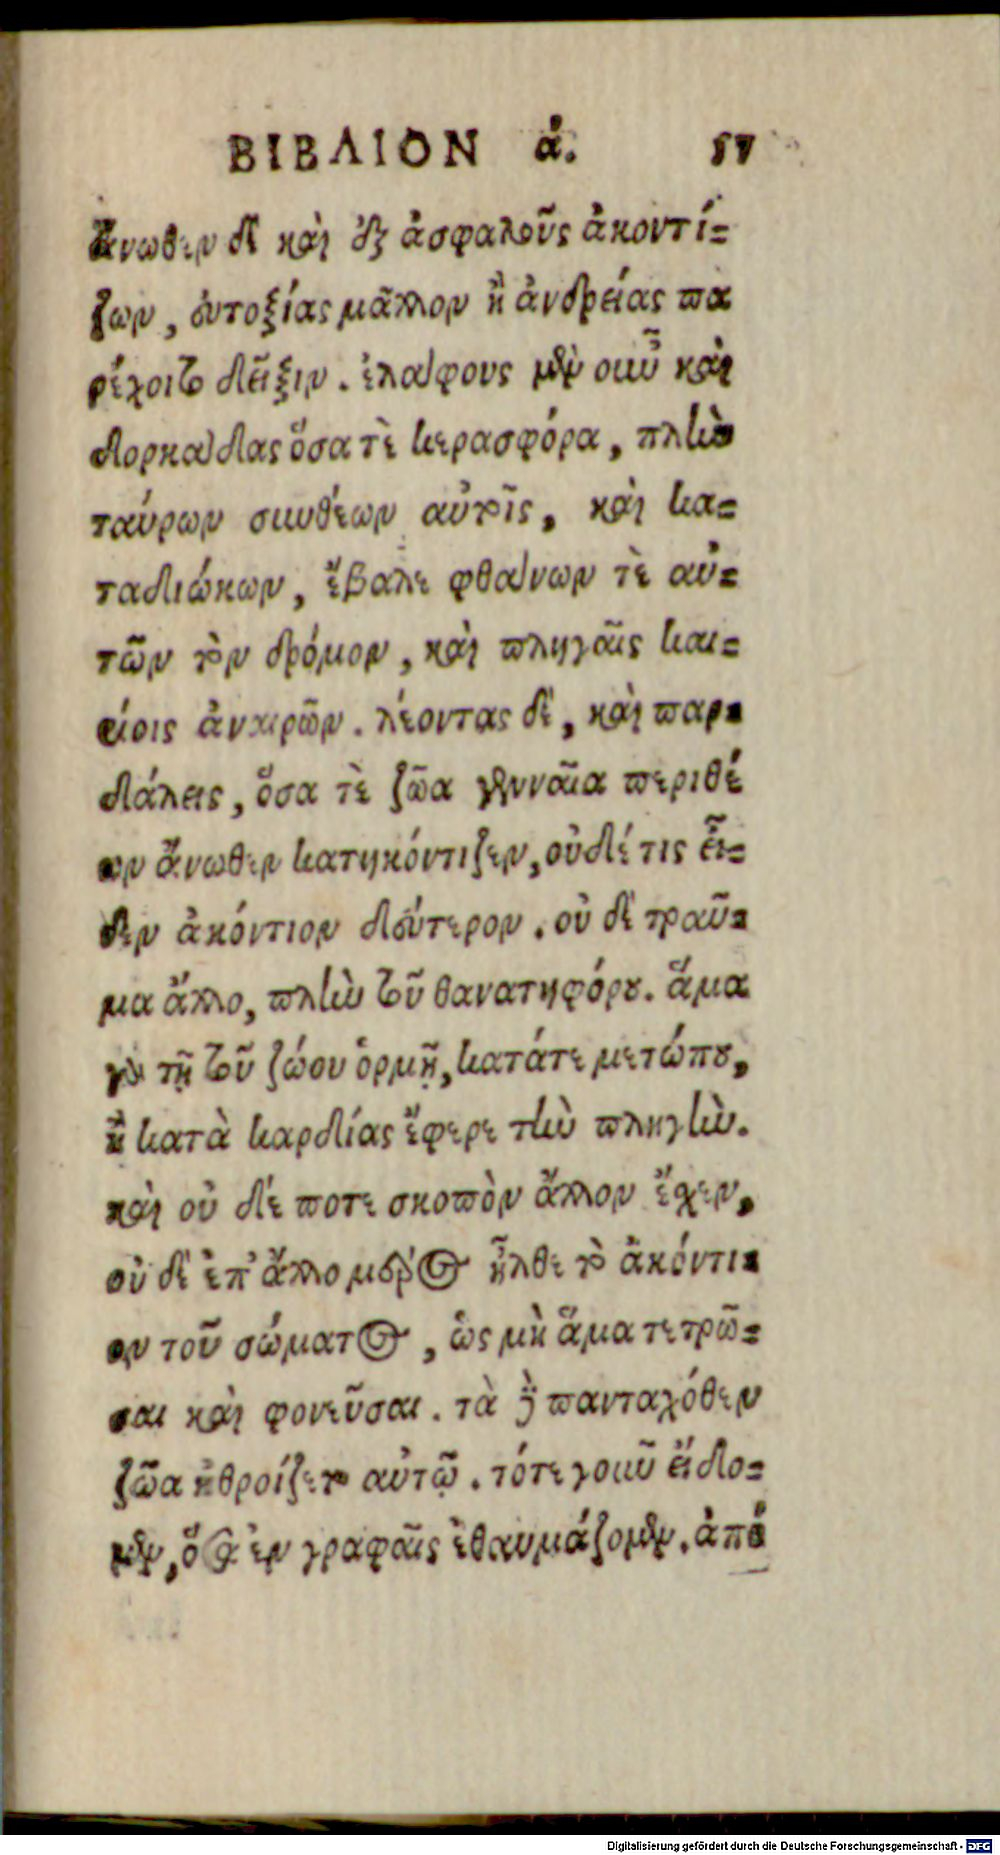 ΒΙΒΛΙΟΝ ά. 57
ἄνωθεν δὲ καὶ ἐξ ἀσφαλοῦς ἀκοντί-
ζων, εὐτοξίας μᾶλλον ἢ ἀνδρείας πα
ρέχοιτο δεῖξιν. ἐλάφους μὲν οὖν καὶ
δορκάδας ὅσα τὲ κερασφόρα, πλὴν
ταύρων συνθέων αὐτοῖς, καὶ κα-
ταδιώκων, ἔβαλε φθάνων τὲ αὐ-
τῶν τὸν δρόμον, καὶ πληγαῖς και-
ρίοις ἀναιρῶν. λέοντας δὲ, καὶ παρ-
δάλεις, ὅσα τὲ ζῶα γενναῖα περιθέ
ων ἄνωθεν κατηκόντιζεν, οὐδέ τις εἶ-
δεν ἀκόντιον δεύτερον. οὐ δὲ τραῦ-
μα ἄλλο, πλὴν τοῦ θανατηφόρου. ἅμα
γὰρ τῇ τοῦ ζώου ὁρμῇ, κατάτε μετώπου,
ἢ κατὰ καρδίας ἔφερε τὴν πληγὴν.
καὶ οὐ δέ ποτε σκοπὸν ἄλλον ἔχεν,
οὐ δὲ ἐπ' ἄλλο μέρος ἦλθε τὸ ἀκόντι-
ον τοῦ σώματος, ὡς μὴ ἅμα τε τρῶ-
σαι καὶ φονεῦσαι. τὰ δὲ πανταχόθεν
ζῶα ἠθροίζετο αὐτῷ. τότε γοῦν εἴδο-
μεν, ὅσα ἐν γραφαῖς ἐθαυμάζομεν. ἀπό
Digitalisierung gefördert durch die Deutsche Forschungsgemeinschaft - DFG